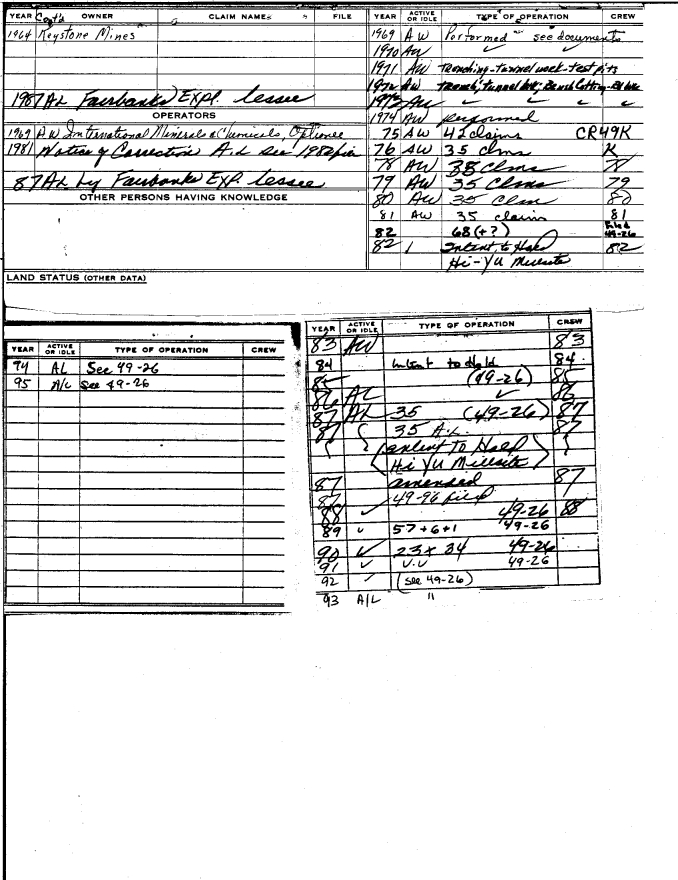 YEAR Cont'd OWNER CLAIM NAMES FILE
1964 Keystone Mines
1987 AL Fairbanks Expl. lessee
OPERATORS
1969 AW International Minerals & Chemicals, Optionee
1981 Notice of Correction A.L see 1982 file
87 AL by Fairbanks EXP. lessee
OTHER PERSONS HAVING KNOWLEDGE
LAND STATUS (OTHER DATA)
YEAR ACTIVE OR IDLE TYPE OF OPERATION CREW
1969 AW Performed see documents
1970 AW ✓ ✓
1971 AW Trenching-tunnel work-test pits
1972 AW Trench, tunnel
1973 AW
1974 AW performed
75 AW 42 claims CR49K
76 AW 35 clms K
78 AW 35 clms 78
79 AW 35 Clms 79
80 AW 35 Clm 80
81 AW 35 claim 81
82 68 (+?) Filed 49-26
82 Intent to Hold 82
Hi-YU Millsite
YEAR ACTIVE OR IDLE TYPE OF OPERATION CREW
94 AL See 49-26
95 A/L see 49-26
YEAR ACTIVE OR IDLE TYPE OF OPERATION CREW
83 AW 83
84 intent to Hold 84
85 (49-26) 85
86 AL ✓ 86
87 AL 35 (49-26) 87
87 35 A.L. 87
(intent to Hold
Hi YU Millsite)
87 amended 87
87 49-96 filed
88 ✓ 49-26 88
89 ✓ 57+6+1 49-26
90 ✓ 23 x 34 49-26
91 ✓ U.U 49-26
92 ✓ (see 49-26)
93 A/L "